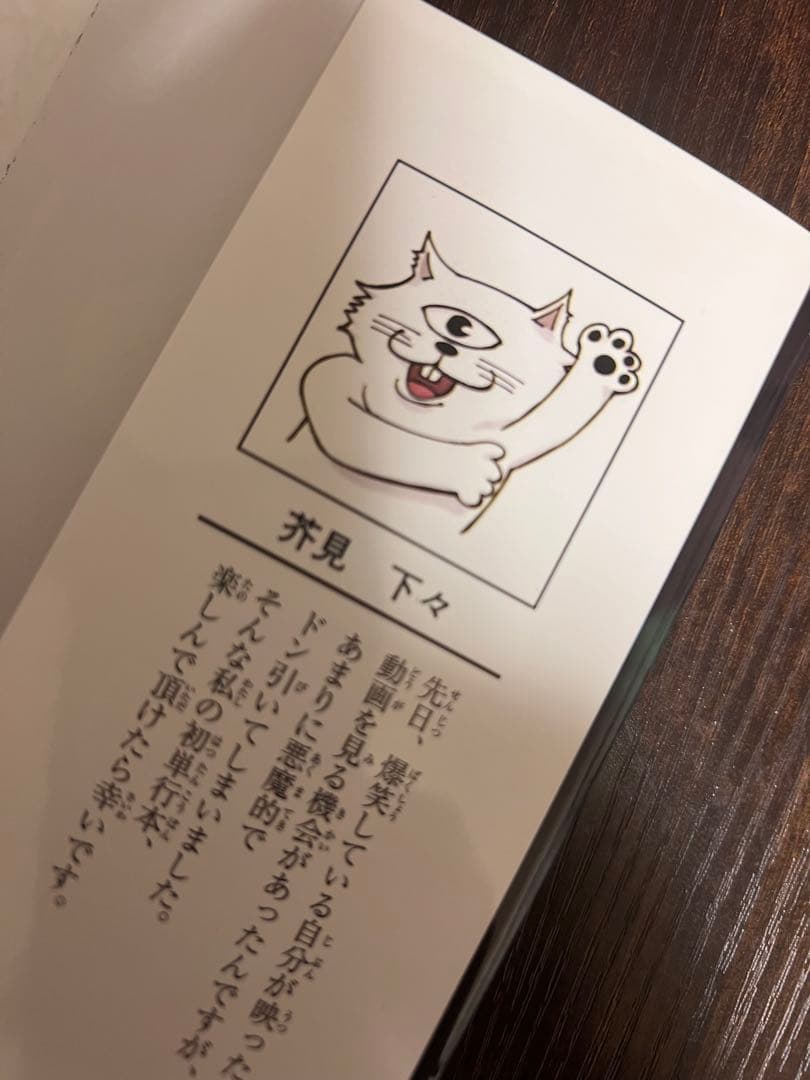 芥見 下々
先日、爆笑している自分が映った
動画を見る機会があったんですが、
あまりに悪魔的で
ドン引いてしまいました。
そんな私の初単行本、
楽しんで頂けたら幸いです。